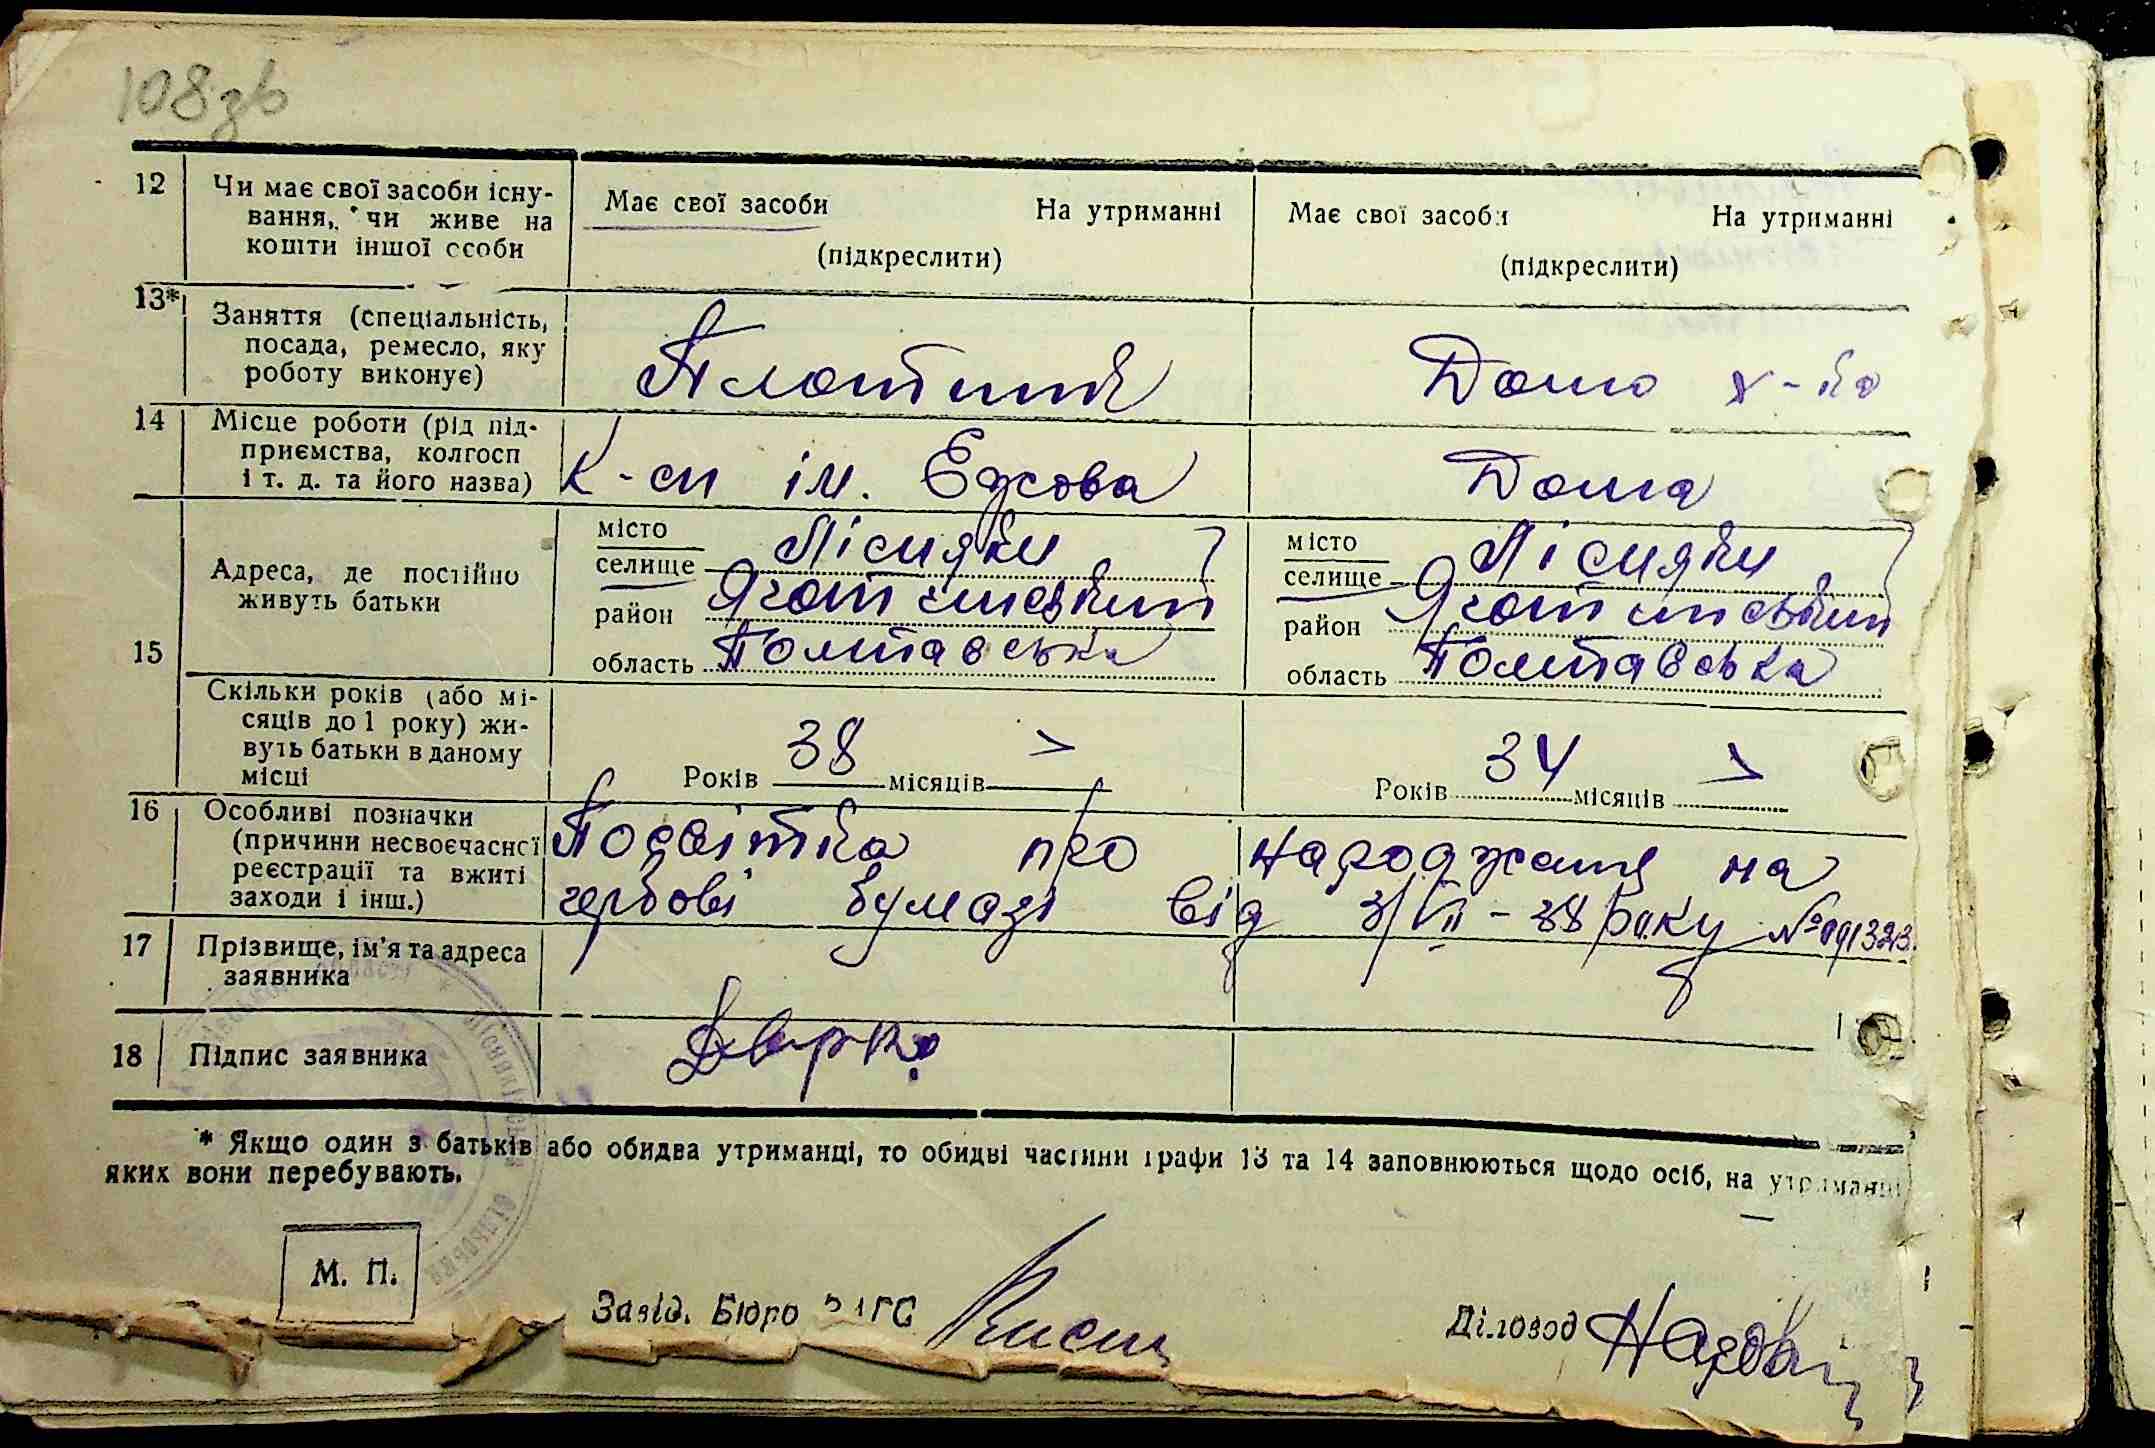 108зв
12 Чи має свої засоби існу-
вання, чи живе на
кошти іншої особи
Має свої засоби На утриманні
(підкреслити)
Має свої засоби На утриманні
(підкреслити)
13* Заняття (спеціальність,
посада, ремесло, яку
роботу виконує)
Плотник
Домо х-ка
14 Місце роботи (рід під-
приємства, колгосп
і т. д. та його назва)
К-сп ім. Єжова
Дома
15 Адреса, де постійно
живуть батьки
місто
селище Лісняки
район Яготинський
область Полтавська
місто
селище Лісняки
район Яготинський
область Полтавська
Скільки років (або мі-
сяців до 1 року) жи-
вуть батьки в даному
місці
Років 38 місяців
Років 34 місяців
16 Особливі позначки
(причини несвоєчасної
реєстрації та вжиті
заходи і інш.)
Посвітка про народженя на
гербові бумазі від 3/VII-38 року №
17 Прізвище, ім'я та адреса
заявника
18 Підпис заявника
* Якщо один з батьків або обидва утриманці, то обидві частини графи 13 та 14 заповнюються щодо осіб, на утриманні
яких вони перебувають.
М. П.
Завід. Бюро ЗАГС
Діловод